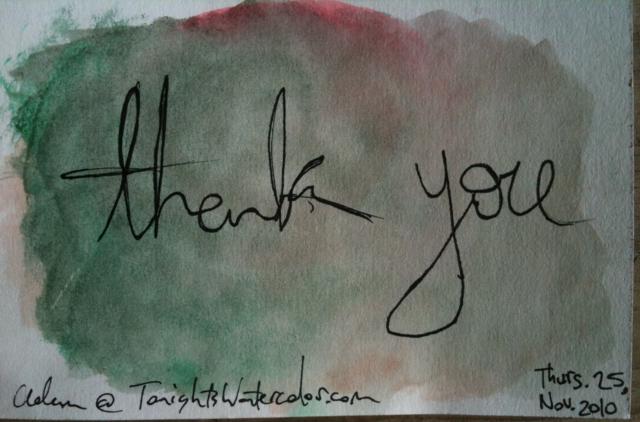 thank you
Adam @ TonightsWatercolor.com
Thurs. 25,
Nov. 2010